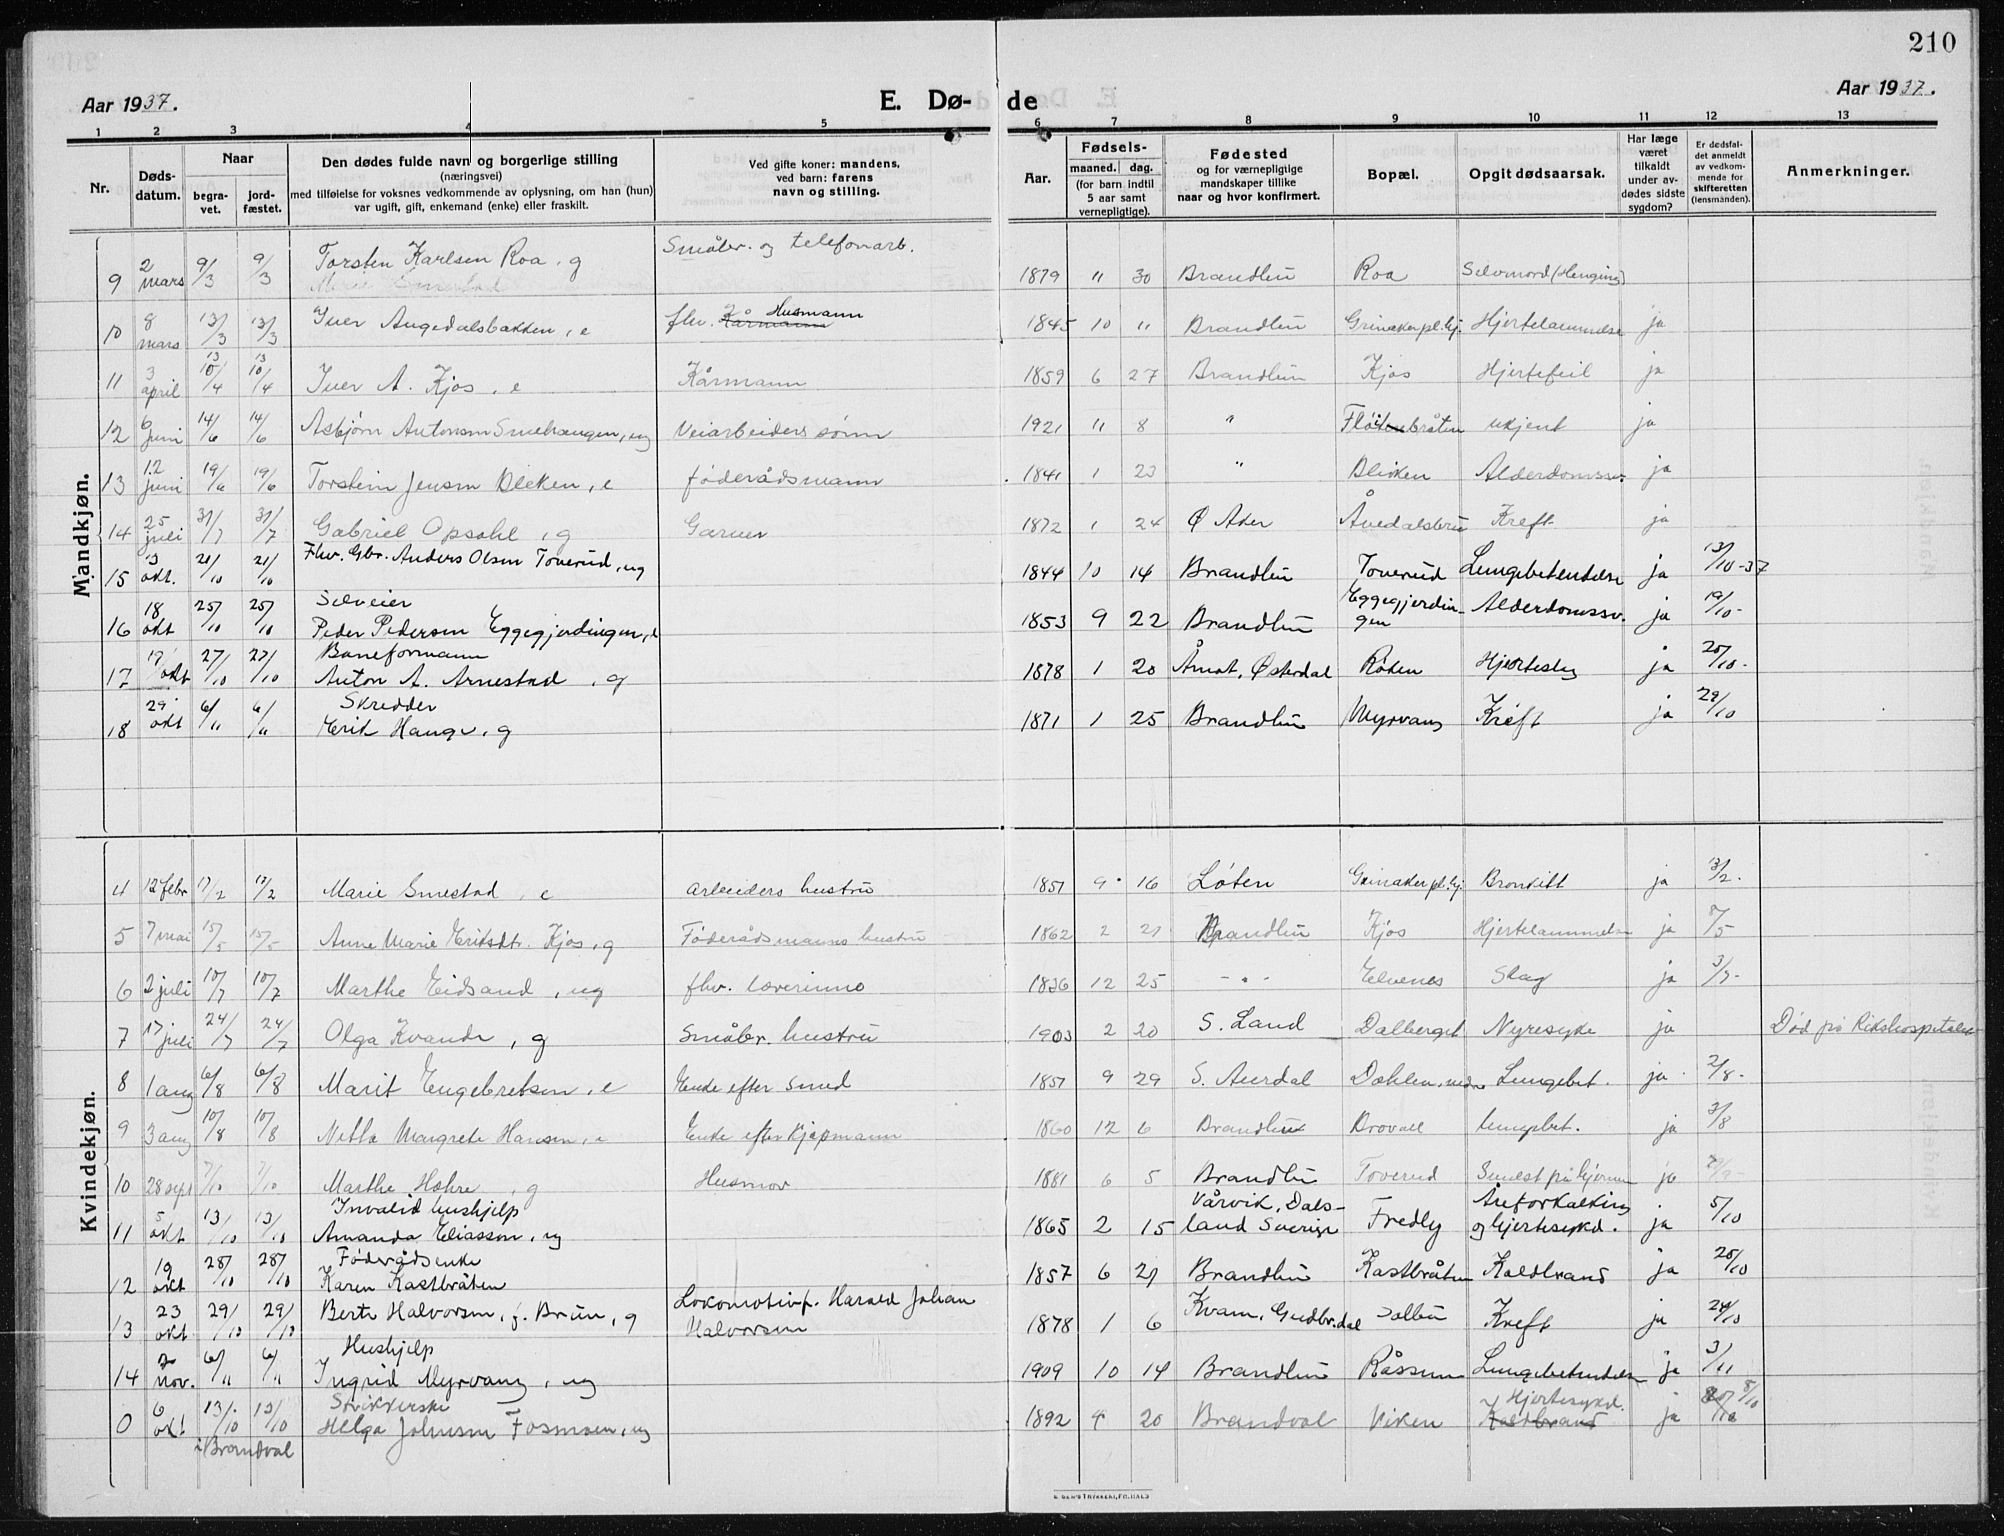 210
Aar 1937.
E. Dø- de
Aar 1937.
1 2 3 4 5 6 7 8 9 10 11 12 13
Nr.
Døds-
datum.
Naar
begra-
vet.
jord-
fæstet.
Den dødes fulde navn og borgerlige stilling
(næringsvei)
med tilføielse for voksnes vedkommende av oplysning, om han (hun)
var ugift, gift, enkemand (enke) eller fraskilt.
Ved gifte koner: mandens,
ved barn: farens
navn og stilling.
Aar.
Fødsels-
maaned. dag.
(for barn indtil
5 aar samt
vernepligtige).
Fødested
og for værnepligtige
mandskaper tillike
naar og hvor konfirmert.
Bopæl.
Opgit dødsaarsak.
Har læge
været
tilkaldt
under av-
dødes sidste
sygdom?
Er dødsfal-
det anmeldt
av vedkom-
mende for
skifteretten
(lensmanden).
Anmerkninger.
Mandkjøn.
9 2 mars 9/3 9/3 Torsten Karlsen Roa, g Småbr. og telefonarb. 1879 11 30 Brandbu Roa Selvmord (Henging)
10 8 mars 13/3 13/3 Iver Augedalsbakken, e fhv. Kårmann Husmann 1845 10 11 Brandbu Grinaker pl.hj. Hjertelammelse ja
11 3 april 10/4 13 10/4 13 Iver A. Kjos, e Kårmann 1859 6 27 Brandbu Kjos Hjertefeil ja
12 6 juni 14/6 14/6 Asbjørn Antonsen Smehaugen, ug Veiarbeiders sønn 1921 11 8 " Fløitenbråten ukjent ja
13 12 juni 19/6 19/6 Torstein Jensen Bleken, e føderådsmann 1841 1 23 " Bleken Alderdomssv. ja
14 25 juli 31/7 31/7 Gabriel Opsahl, g Garver 1872 1 24 Ø Aker Åvedalsbru Kreft ja
15 13 okt. 21/10 21/10 Fhv. Gbr. Anders Olsen Toverud, ug 1844 10 14 Brandbu Toverud Lungebetendelse ja 13/10-37
16 18 okt 25/10 25/10 Selveier
Peder Pedersen Eggegjerdingen, e 1853 9 22 Brandbu Eggegjerdin-
gen Alderdomssv. ja 19/10-
17 19 okt 27/10 27/10 Baneformann
Anton A. Arnestad, g 1878 1 20 Åmot, Østerdal Røken Hjerteslag ja 20/10-
18 29 okt 6/11 6/11 Skredder
Erik Hauge, g 1871 1 25 Brandbu Myrvang Kreft ja 29/10
Kvindekjøn.
4 12 febr 17/2 17/2 Marie Smestad, e Arbeiders hustru 1851 9 16 Løten Grinaker pl.hj. Bronkitt ja 13/2.
5 7 mai 15/5 15/5 Anne Marie Eriksdt. Kjos, g Føderådsmanns hustru 1862 2 21 Brandbu Kjos Hjertelammelse ja 8/5
6 2 juli 10/7 10/7 Marthe Eidsand, ug fhv. lærerinne 1836 12 25 - " - Elvenes Slag ja 3/7-
7 17 juli 24/7 24/7 Olga Kvande, g Småbr. hustru 1903 2 20 S. Land Dalberget Nyresyke ja Død på Rikshospitalet
8 1 aug 6/8 6/8 Marit Engebretsen, e Enke efter smed 1851 9 29 S. Aurdal Dæhlen, nedre Lungebet. ja 2/8-
9 3 aug 10/8 10/8 Netta Margrete Hansen, e Enke efter kjøpmann 1860 12 6 Brandbu Brovoll Lungebet. ja 3/8
10 28 sept 7/10 7/10 Marthe Hæhre, g Husmor 1881 6 5 Brandbu Toverud Svulst på hjernen ja
11 5 okt 13/10 13/10 Invalid hushjelp
Amanda Eliasson, ug 1865 2 15 Vårvik, Dals-
land Sverige Fredly Åreforkalkning
og hjertesykd. ja 5/10
12 19 okt 28/10 28/10 Føderådsenke
Karen Kastbråten 1857 6 21 Brandbu Kastbråten Koldbrand ja 20/10
13 23 okt 29/10 29/10 Berte Halvorsen, f. Brun, g Lokomotivf. Harald Johan
Halvorsen 1878 1 6 Kvam, Gudbr.dal Solbu Kreft ja 24/10
14 2 nov. 6/11 6/11 Hushjelp
Ingrid Myrvang, ug 1909 10 14 Brandbu Råssum Lungebetendelse ja 3/11
0 6 okt 13/10 13/10 Strikkerske
Helga Johnsen Fosmoen, ug 1892 4 20 Brandval Viken Koldbrand Hjertesykd. ja 8/10
i Brandval